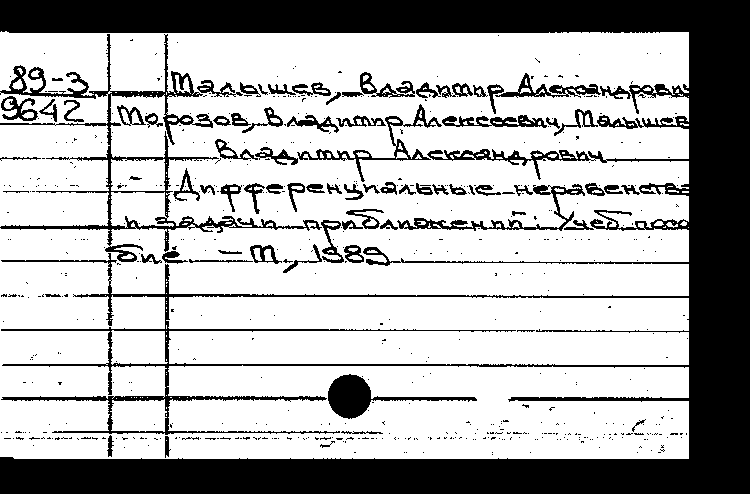 89-3 Малышев, Владимир Александрович
9642 Морозов, Владимир Алексеевич, Малышев
Владимир Александрович
- Дифференциальные неравенства
и задачи приближений: Учеб. посо
бие. - М, 1989